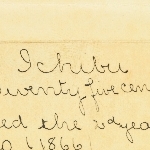 Ichibu
twenty five cen
ed the 2d year
1866